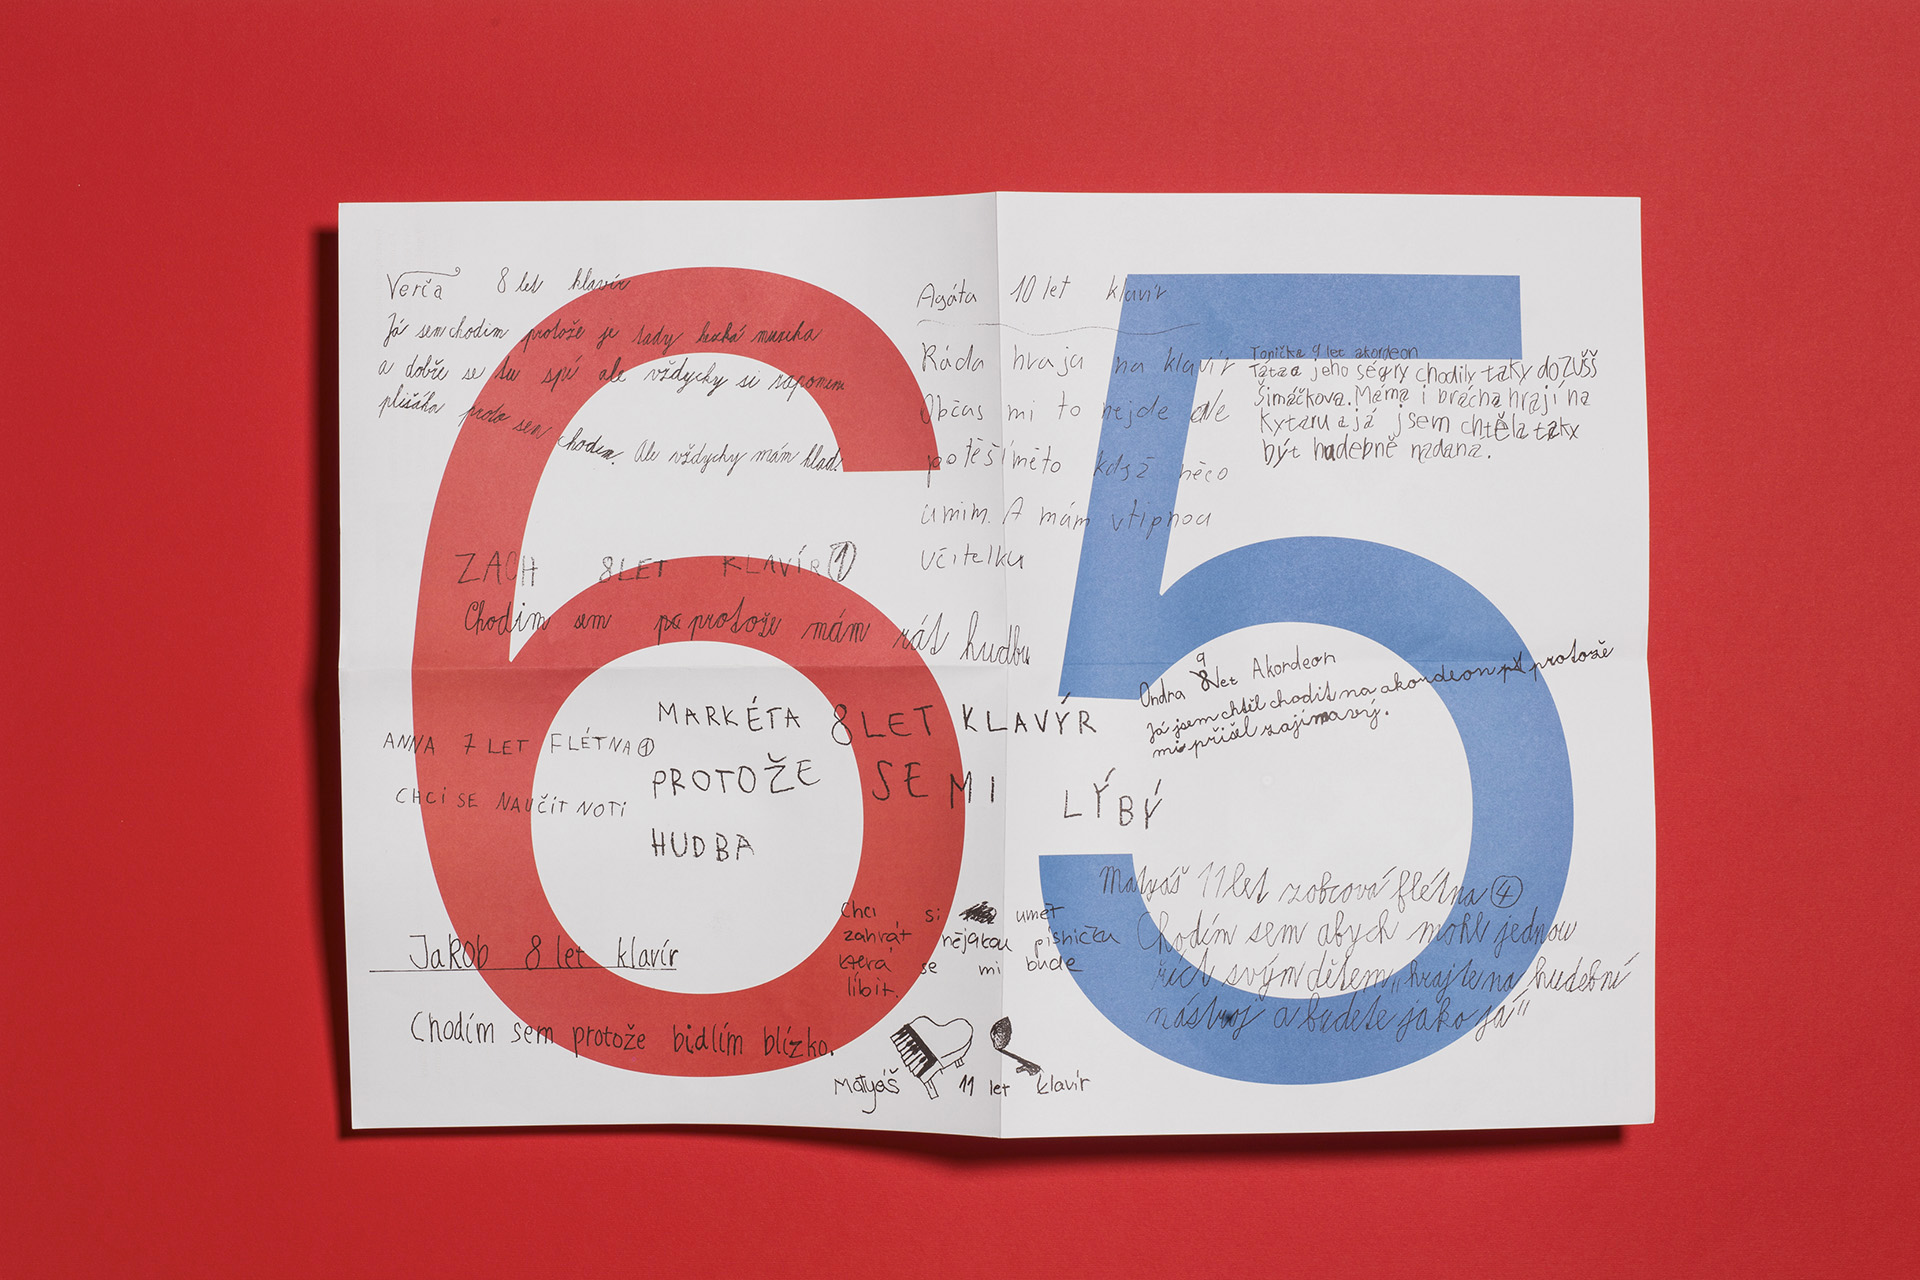 65
Verča 8 let klavír
Já sem chodim protože je tady hezká muzika
a dobře se tu spí ale vždycky si zapomenu
plišáka proto sem chodim. Ale vždycky mám hlad!
Agáta 10 let klavír
Ráda hraju na klavír
Občas mi to nejde ale
potěší mě to když něco
umim. A mám vtipnou
učitelku
Tonička 9 let akordeon
Táta a jeho ségry chodily taky do ZUŠŠ
Šimáčkova. Máma i brácha hrají na
kytaru a já jsem chtěla taky
být hudebně nadaná.
ZACH 8 LET KLAVÍR 1
Chodim sem protože mám rát hudbu
Ondra 9 let Akordeon
Já jsem chtěl chodit na akordeon protože
mi přišel zajímavý.
MARKÉTA 8 LET KLAVÝR
PROTOŽE SE MI LÝBÝ
HUDBA
ANNA 7 LET FLÉTNA 1
CHCI SE NAUČIT NOTI
Matyáš 11 let zobcová flétna 4
Chodím sem abych mohl jednou
říct svým dětem „hrajte na hudební
nástroj a budete jako já"
Jakob 8 let klavír
Chodím sem protože bidlím blízko.
Chci si umět
zahrát nějakou písničku
která se mi bude
líbit.
Matyáš 11 let klavír